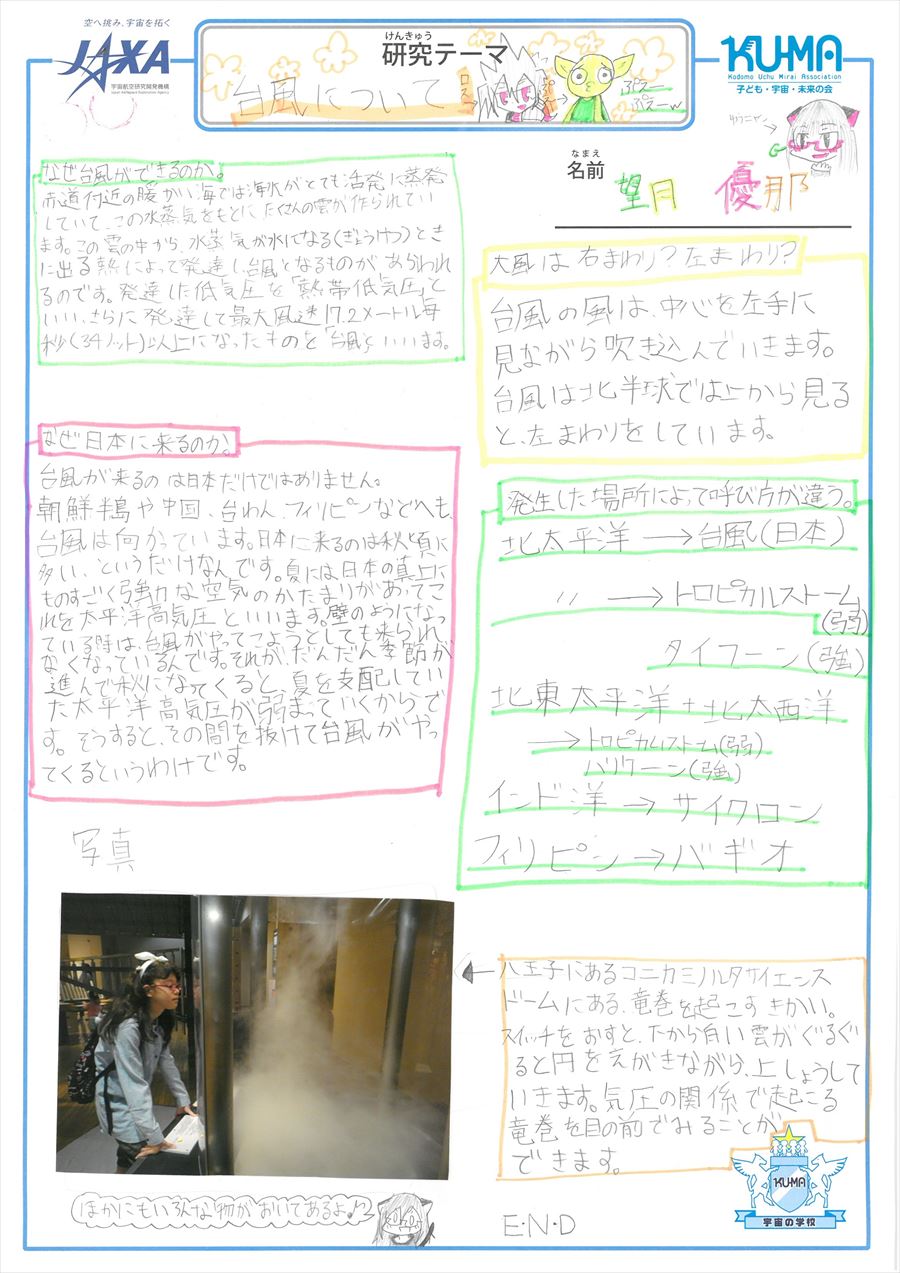 空へ挑み、宇宙を拓く
JAXA
宇宙航空研究開発機構
Japan Aerospace Exploration Agency
けんきゅう
研究テーマ
台風について
ぷえー
ぷえーw
KUMA
Kodomo Uchu Mirai Association
子ども・宇宙・未来の会
なまえ
名前
望月 優那
なぜ台風ができるのか。
赤道付近の暖かい海では海水がとても活発に蒸発
していて、この水蒸気をもとに、たくさんの雲が作られてい
ます。この雲の中から、水蒸気が水になる(ぎょうけつ)とき
に出る熱によって発達し台風となるものがあらわれ
るのです。発達した低気圧を「熱帯低気圧」と
いい、さらに発達して最大風速17.2メートル毎
秒(34ノット)以上になったものを「台風」といいます。
なぜ日本に来るのか。
台風が来るのは日本だけではありません。
朝鮮半島や中国、台わん、フィリピンなどへも、
台風は向かています。日本に来るのは秋頃に
多い、というだけなんです。夏には日本の真上に
ものすごく強力な空気のかたまりがあってこ
れを太平洋高気圧といいます。壁のようになな
ている時は、台風がやってこようとしても来られ
なくなっているんです。それが、だんだん季節が
進んで秋になってくると、夏を支配してい
た太平洋高気圧が弱まっていくからで
す。そうすると、その間を抜けて台風がやっ
てくるというわけです。
大風は右まわり?左まわり?
台風の風は、中心を左手に
見ながら吹き込んでいきます。
台風は北半球では上から見る
と、左まわりをしています。
発生した場所によって呼び方が違う。
北太平洋→台風(日本)
〃→トロピカルストーム
(弱)
タイフーン(強)
北東太平洋+北太西洋
→トロピカルストーム(弱)
ハリケーン(強)
インド洋→サイクロン
フィリピン→バギオ
写真
←八王子にあるコニカミノルタサイエンス
ドームにある、竜巻を起こすきかい。
スイッチをおすと、下から白い雲がぐるぐ
ると円をえがきながら、上しょうして
いきます。気圧の関係で起こる
竜巻を目の前でみることが
できます。
ほかにもいろんな物がおいてあるよ♪
E・N・D
KU-MA
宇宙の学校